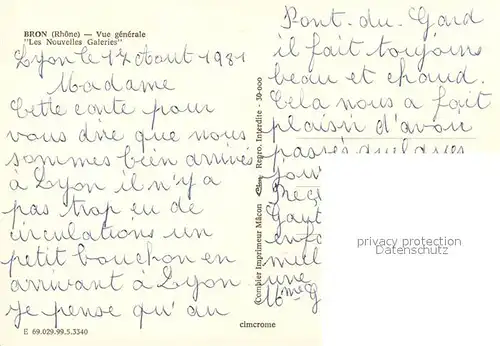 BRON (Rhône) — Vue générale
"Les Nouvelles Galeries"
Lyon le 17 Aout 1981
Madame
Cette carte pour
vous dire que nous
sommes bien arrivés
à Lyon il n'y a
pas trop eu de
circulations un
petit bouchon en
arrivant à Lyon
je pense qu'au
E 69.029.99.5.3340
cimcrome
Combier Imprimeur Mâcon Cim Repro. Interdite - 30-000
Pont-du-Gard
il fait toujours
beau et chaud.
Cela nous a fait
plaisir d'avoir
passés quelques
jour
enfa
une
privacy protection
Datenschutz